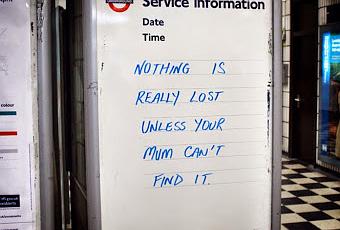 Service information
Date
Time
NOTHING IS
REALLY LOST
UNLESS YOUR
MUM CAN'T
FIND IT.
colour